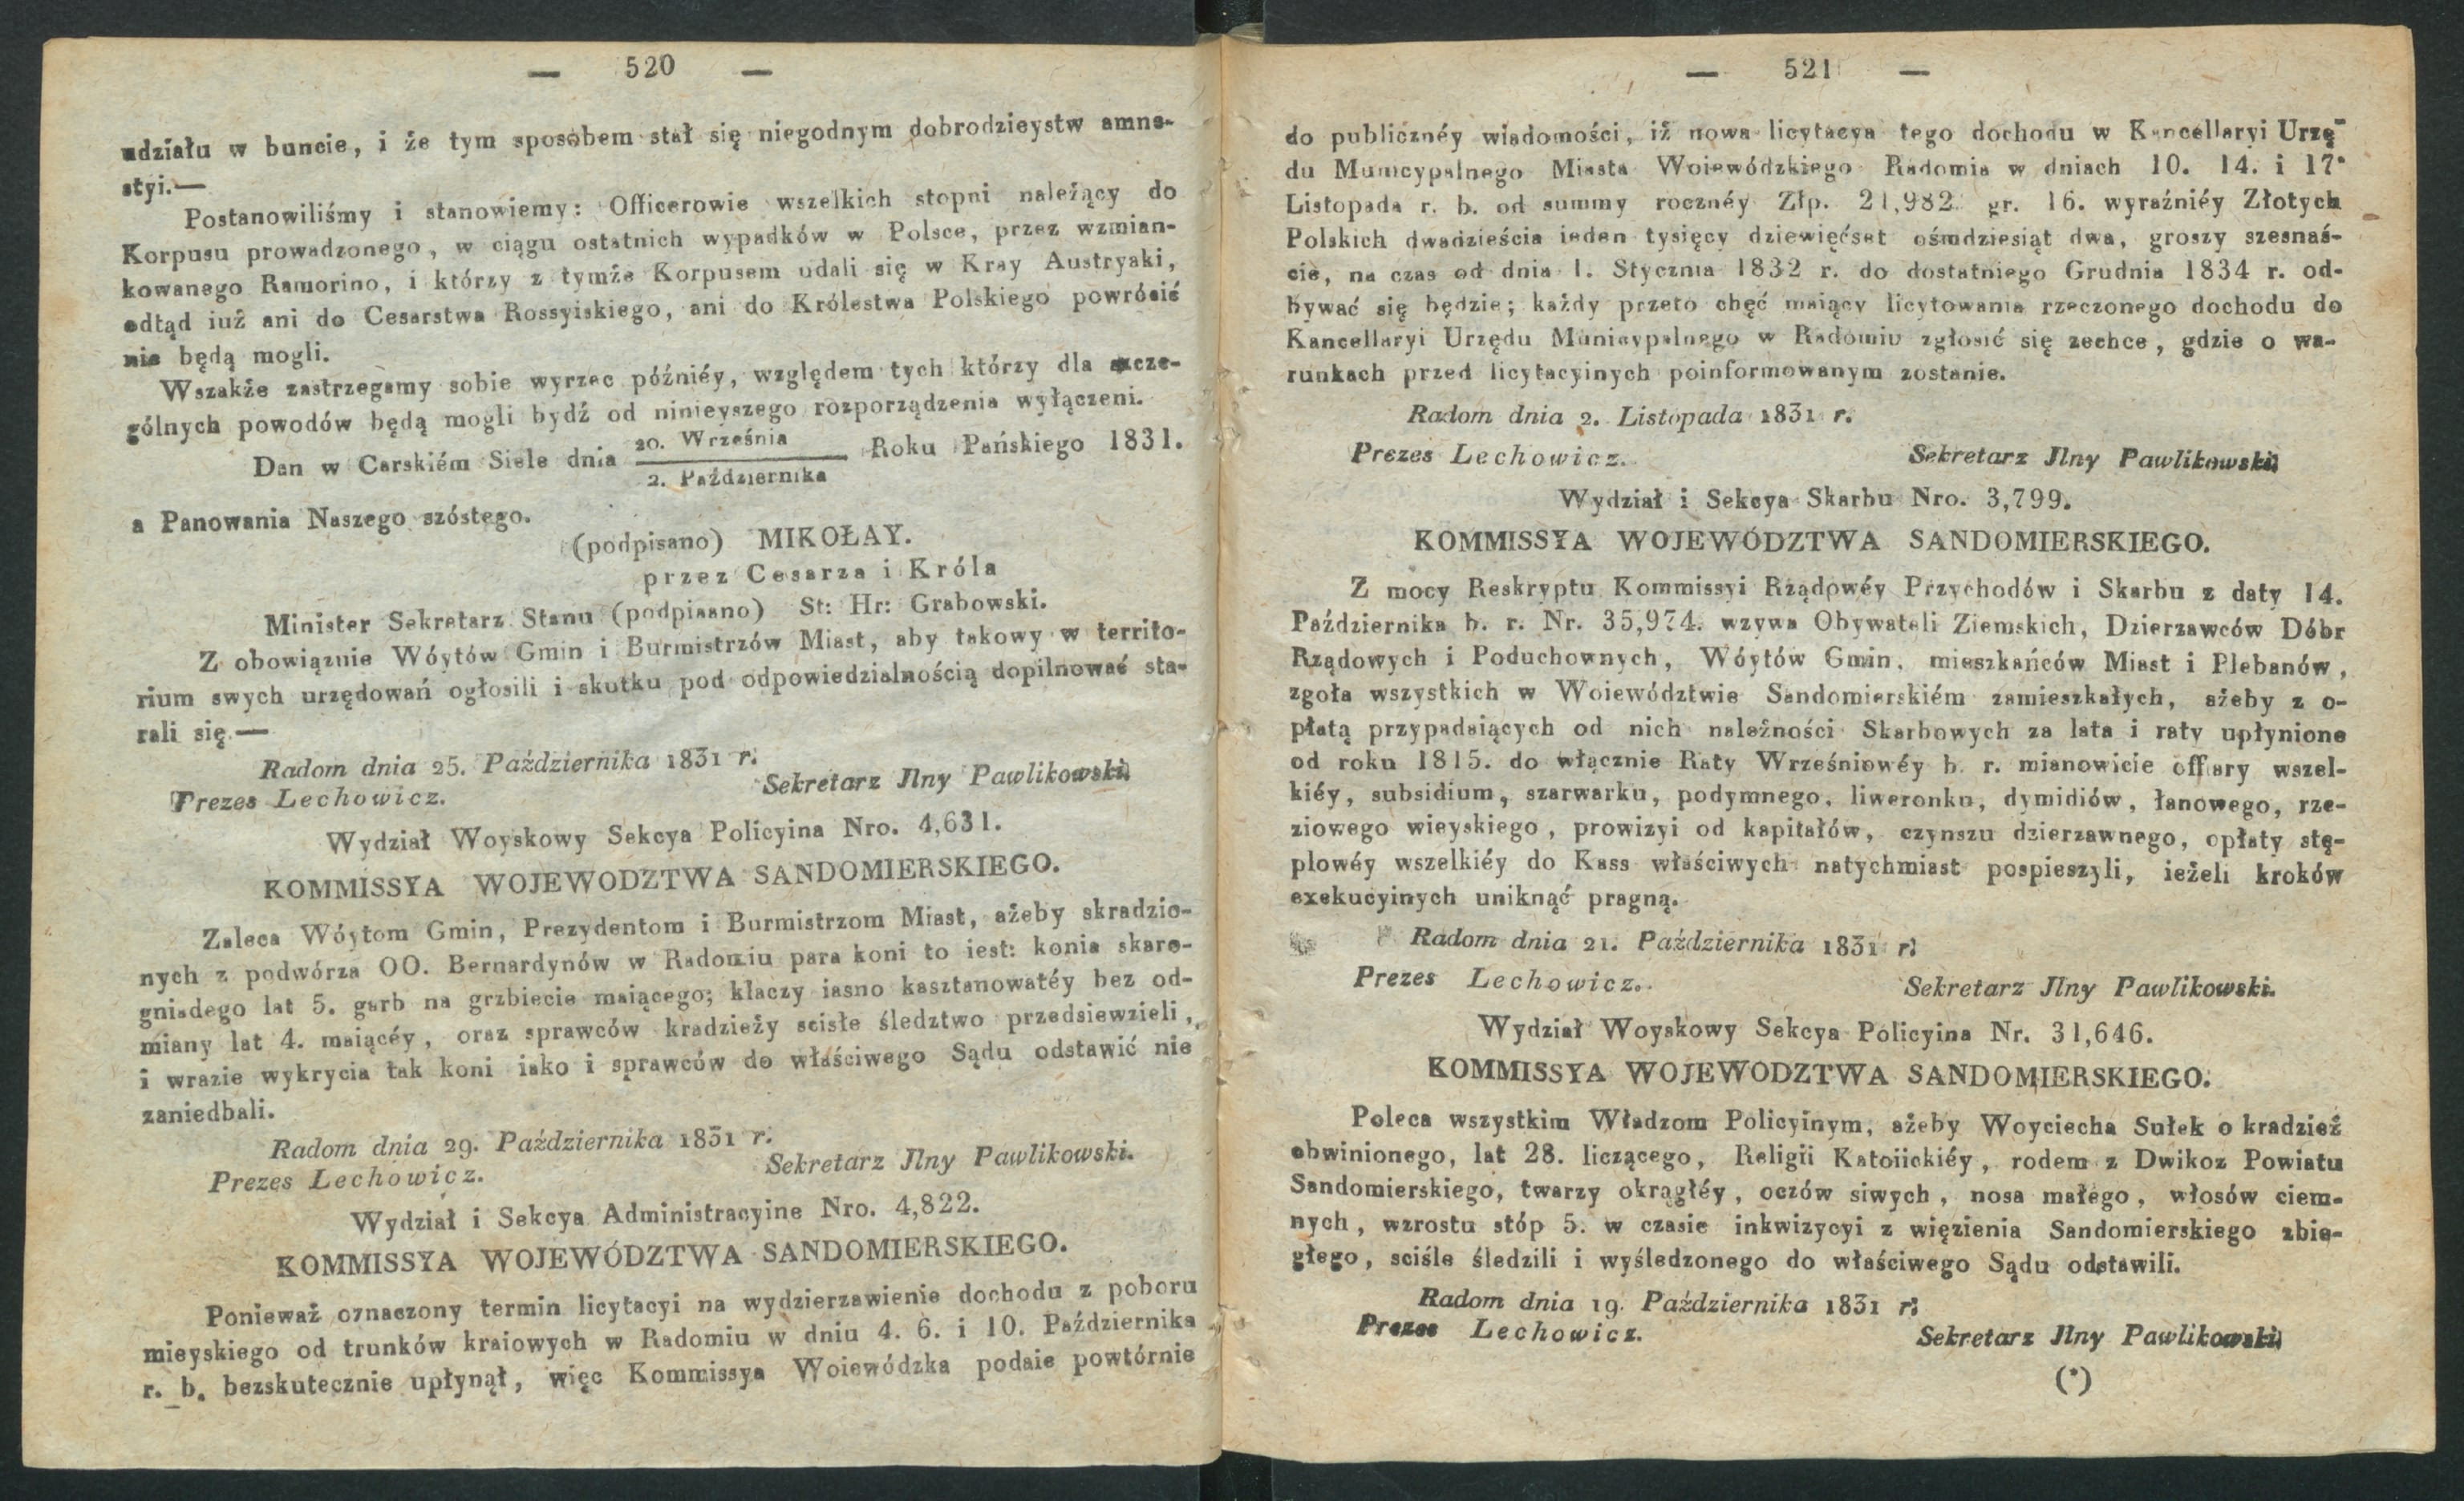 — 520 —
udziału w buncie, i że tym sposobem stał się niegodnym dobrodzieystw amne-
styi.—
Postanowiliśmy i stanowiemy: Officerowie wszelkich stopni należący do
Korpusu prowadzonego, w ciągu ostatnich wypadków w Polsce, przez wzmian-
kowanego Ramorino, i którzy z tymże Korpusem udali się w Kray Austryaki,
odtąd iuż ani do Cesarstwa Rossyiskiego, ani do Królestwa Polskiego powrócić
nie będą mogli.
Wszakże zastrzegamy sobie wyrzec późniéy, względem tych którzy dla szcze-
gólnych powodów będą mogli bydź od ninieyszego rozporządzenia wyłączeni.
Dan w Carskiém Siele dnia 20. Września / 2. Października Roku Pańskiego 1831.
a Panowania Naszego szóstego.
(podpisano) MIKOŁAY.
przez Cesarza i Króla
Minister Sekretarz Stanu (podpisano) St: Hr: Grabowski.
Z obowiąznie Wóytów Gmin i Burmistrzów Miast, aby takowy w territo-
rium swych urzędowań ogłosili i skutku pod odpowiedzialnością dopilnować sta-
rali się.—
Radom dnia 25. Października 1831 r.
Prezes Lechowicz. Sekretarz Jlny Pawlikowski.
Wydział Woyskowy Sekcya Policyina Nro. 4,631.
KOMMISSYA WOJEWODZTWA SANDOMIERSKIEGO.
Zaleca Wóytom Gmin, Prezydentom i Burmistrzom Miast, ażeby skradzio-
nych z podwórza OO. Bernardynów w Radomiu para koni to iest: konia skaro-
gniadego lat 5. garb na grzbiecie maiącego; klaczy iasno kasztanowatéy bez od-
miany lat 4. maiącéy, oraz sprawców kradzieży scisłe śledztwo przedsiewzieli,
i wrazie wykrycia tak koni iako i sprawców do właściwego Sądu odstawić nie
zaniedbali.
Radom dnia 29. Października 1831 r.
Prezes Lechowicz. Sekretarz Jlny Pawlikowski.
Wydział i Sekcya Administracyine Nro. 4,822.
KOMMISSYA WOJEWÓDZTWA SANDOMIERSKIEGO.
Ponieważ oznaczony termin licytacyi na wydzierzawienie dochodu z poboru
mieyskiego od trunków kraiowych w Radomiu w dniu 4. 6. i 10. Października
r. b. bezskutecznie upłynął, więc Kommissya Woiewódzka podaie powtórnie
— 521 —
do publicznéy wiadomości, iż nowa licytacya tego dochodu w Kancellaryi Urzę-
du Municypalnego Miasta Woiewódzkiego Radomia w dniach 10. 14. i 17.
Listopada r. b. od summy rocznéy Złp. 21,982. gr. 16. wyraźniéy Złotych
Polskich dwadzieścia ieden tysięcy dziewięćset ośmdziesiąt dwa, groszy szesnaś-
cie, na czas od dnia 1. Stycznia 1832 r. do dostatniego Grudnia 1834 r. od-
bywać się będzie; każdy przeto chęć maiący licytowania rzeczonego dochodu do
Kancellaryi Urzędu Municypalnego w Radomiu zgłosić się zechce, gdzie o wa-
runkach przed licytacyinych poinformowanym zostanie.
Radom dnia 2. Listopada 1831 r.
Prezes Lechowicz. Sekretarz Jlny Pawlikowski
Wydział i Sekcya Skarbu Nro. 3,799.
KOMMISSYA WOJEWÓDZTWA SANDOMIERSKIEGO.
Z mocy Reskryptu Kommissyi Rządowéy Przychodów i Skarbu z daty 14.
Października b. r. Nr. 35,974. wzywa Obywateli Ziemskich, Dzierzawców Dóbr
Rządowych i Poduchownych, Wóytów Gmin, mieszkańców Miast i Plebanów,
zgoła wszystkich w Woiewództwie Sandomierskiém zamieszkałych, ażeby z o-
płatą przypadaiących od nich należności Skarbowych za lata i raty upłynione
od roku 1815. do włącznie Raty Wrześniowéy b. r. mianowicie offiary wszel-
kiéy, subsidium, szarwarku, podymnego, liweronku, dymidiów, łanowego, rze-
ziowego wieyskiego, prowizyi od kapitałów, czynszu dzierzawnego, opłaty stę-
plowéy wszelkiéy do Kass właściwych natychmiast pospieszyli, ieżeli kroków
exekucyinych uniknąć pragną.
Radom dnia 21. Października 1831 r.
Prezes Lechowicz. Sekretarz Jlny Pawlikowski.
Wydział Woyskowy Sekcya Policyina Nr. 31,646.
KOMMISSYA WOJEWODZTWA SANDOMIERSKIEGO.
Poleca wszystkim Władzom Policyinym, ażeby Woyciecha Sułek o kradzież
obwinionego, lat 28. liczącego, Religii Katoiickiéy, rodem z Dwikoz Powiatu
Sandomierskiego, twarzy okrągłéy, oczów siwych, nosa małego, włosów ciem-
nych, wzrostu stóp 5. w czasie inkwizycyi z więzienia Sandomierskiego zbie-
głego, sciśle śledzili i wyśledzonego do właściwego Sądu odstawili.
Radom dnia 19. Października 1831 r.
Prezes Lechowicz. Sekretarz Jlny Pawlikowski
(*)